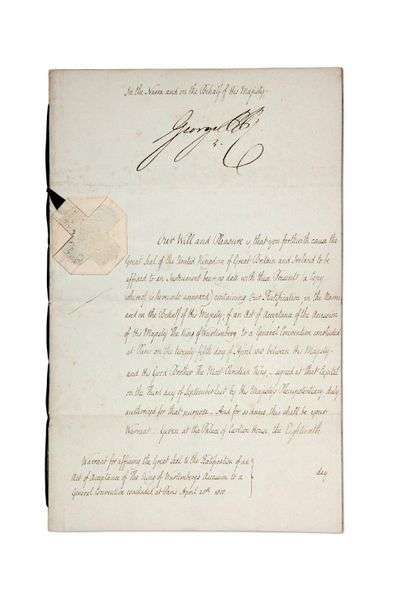 In the Name and on the Behalf of His Majesty.
George P R
Our Will and Pleasure is that you forthwith cause the
Great Seal of the United Kingdom of Great Britain and Ireland to be
affixed to an Instrument bearing date with these Presents (a Copy
whereof is hereunto annexed) containing Our Ratification in the Name
and on the Behalf of His Majesty, of an Act of Acceptance of the Accession
of His Majesty The King of Wurtemberg to a General Convention concluded
at Paris on the twenty fifth day of April between His Majesty
and His Good Brother The Most Christian King, signed at that Capital
on the Third day of September last by His Majesty's Plenipotentiary duly
authorized for that purpose. And for so doing this shall be your
Warrant. Given at the Palace of Carlton House, the Eighteenth
day
Warrant for affixing the Great Seal to the Ratification of an
Act of Acceptance of The King of Wurtemberg's Accession to a
General Convention concluded at Paris April 25th